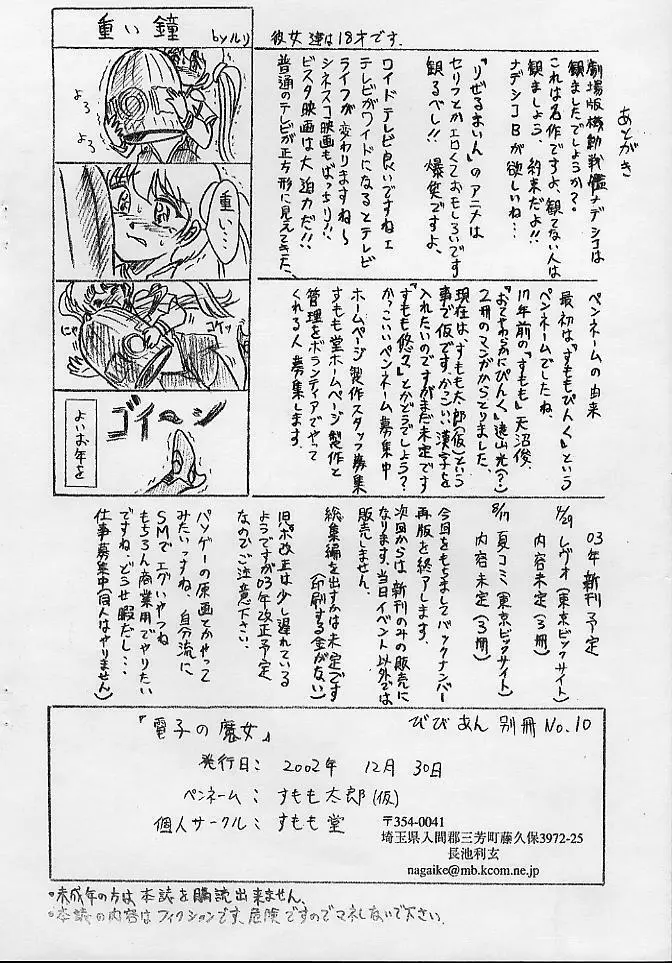 重い鐘
byルリ
よろ
よろ
重い…
にゃ
コケッ
ゴイ～ン
よいお年を
彼女達は18才です.
あとがき
劇場版機動戦艦ナデシコは
観ましたでしょうか?
これは名作ですよ、観てない人は
観ましょう、約束だよ!!
ナデシコBが欲しいね…
『りぜるまいん』のアニメは
セリフとかエロくておもしろいです
観るべし!! 爆笑ですよ、
ワイドテレビ良いですねェ
テレビがワイドになるとテレビ
ライフが変わりますね〜
シネスコ映画もばっちり!!
ビスタ映画は大迫力だ!!
普通のテレビが正方形に見えてきた、
ペンネームの由来
最初は『すももぴんく』という
ペンネームでしたね、
17年前の『すもも』天沼俊、
『おてやわらかにぴんく』遠山光(?)
2冊のマンガからとりました、
現在は、すもも太郎(仮)という
事で仮です、かっこいい漢字を
入れたいのですがまだ未定です
『すもも悠々』とかどうでしょう?
かっこいいペンネーム募集中
ホームページ製作スタッフ募集
すもも堂ホームページ製作と
管理をボランティアでやって
くれる人募集します.
03年新刊予定
4/29 レヴォ(東京ビックサイト)
内容未定(3冊)
8/17 夏コミ(東京ビックサイト)
内容未定(3冊)
今回をもちましてバックナンバー
再版を終了します.
次回からは、新刊のみの販売に
なります.当日イベント以外では
販売しません.
総集編を出すかは未定です
(印刷する金がない)
旧ポ改正は少し遅れている
ようですが03年改正予定
なのでご注意下さい.
パソゲーの原画とかやって
みたいっすね、自分流に
SMでエグいやつね
もちろん商業用でやりたい
ですね.どうせ暇だし…
仕事募集中(同人はやりません)
『電子の魔女』
びびあん 別冊 No.10
発行日: 2002年 12月 30日
ペンネーム: すもも太郎(仮)
個人サークル: すもも堂
〒354-0041
埼玉県入間郡三芳町藤久保3972-25
長池利玄
nagaike@mb.kcom.ne.jp
・未成年の方は、本誌を購読出来ません.
・本誌の内容はフィクションです、危険ですのでマネしないで下さい.